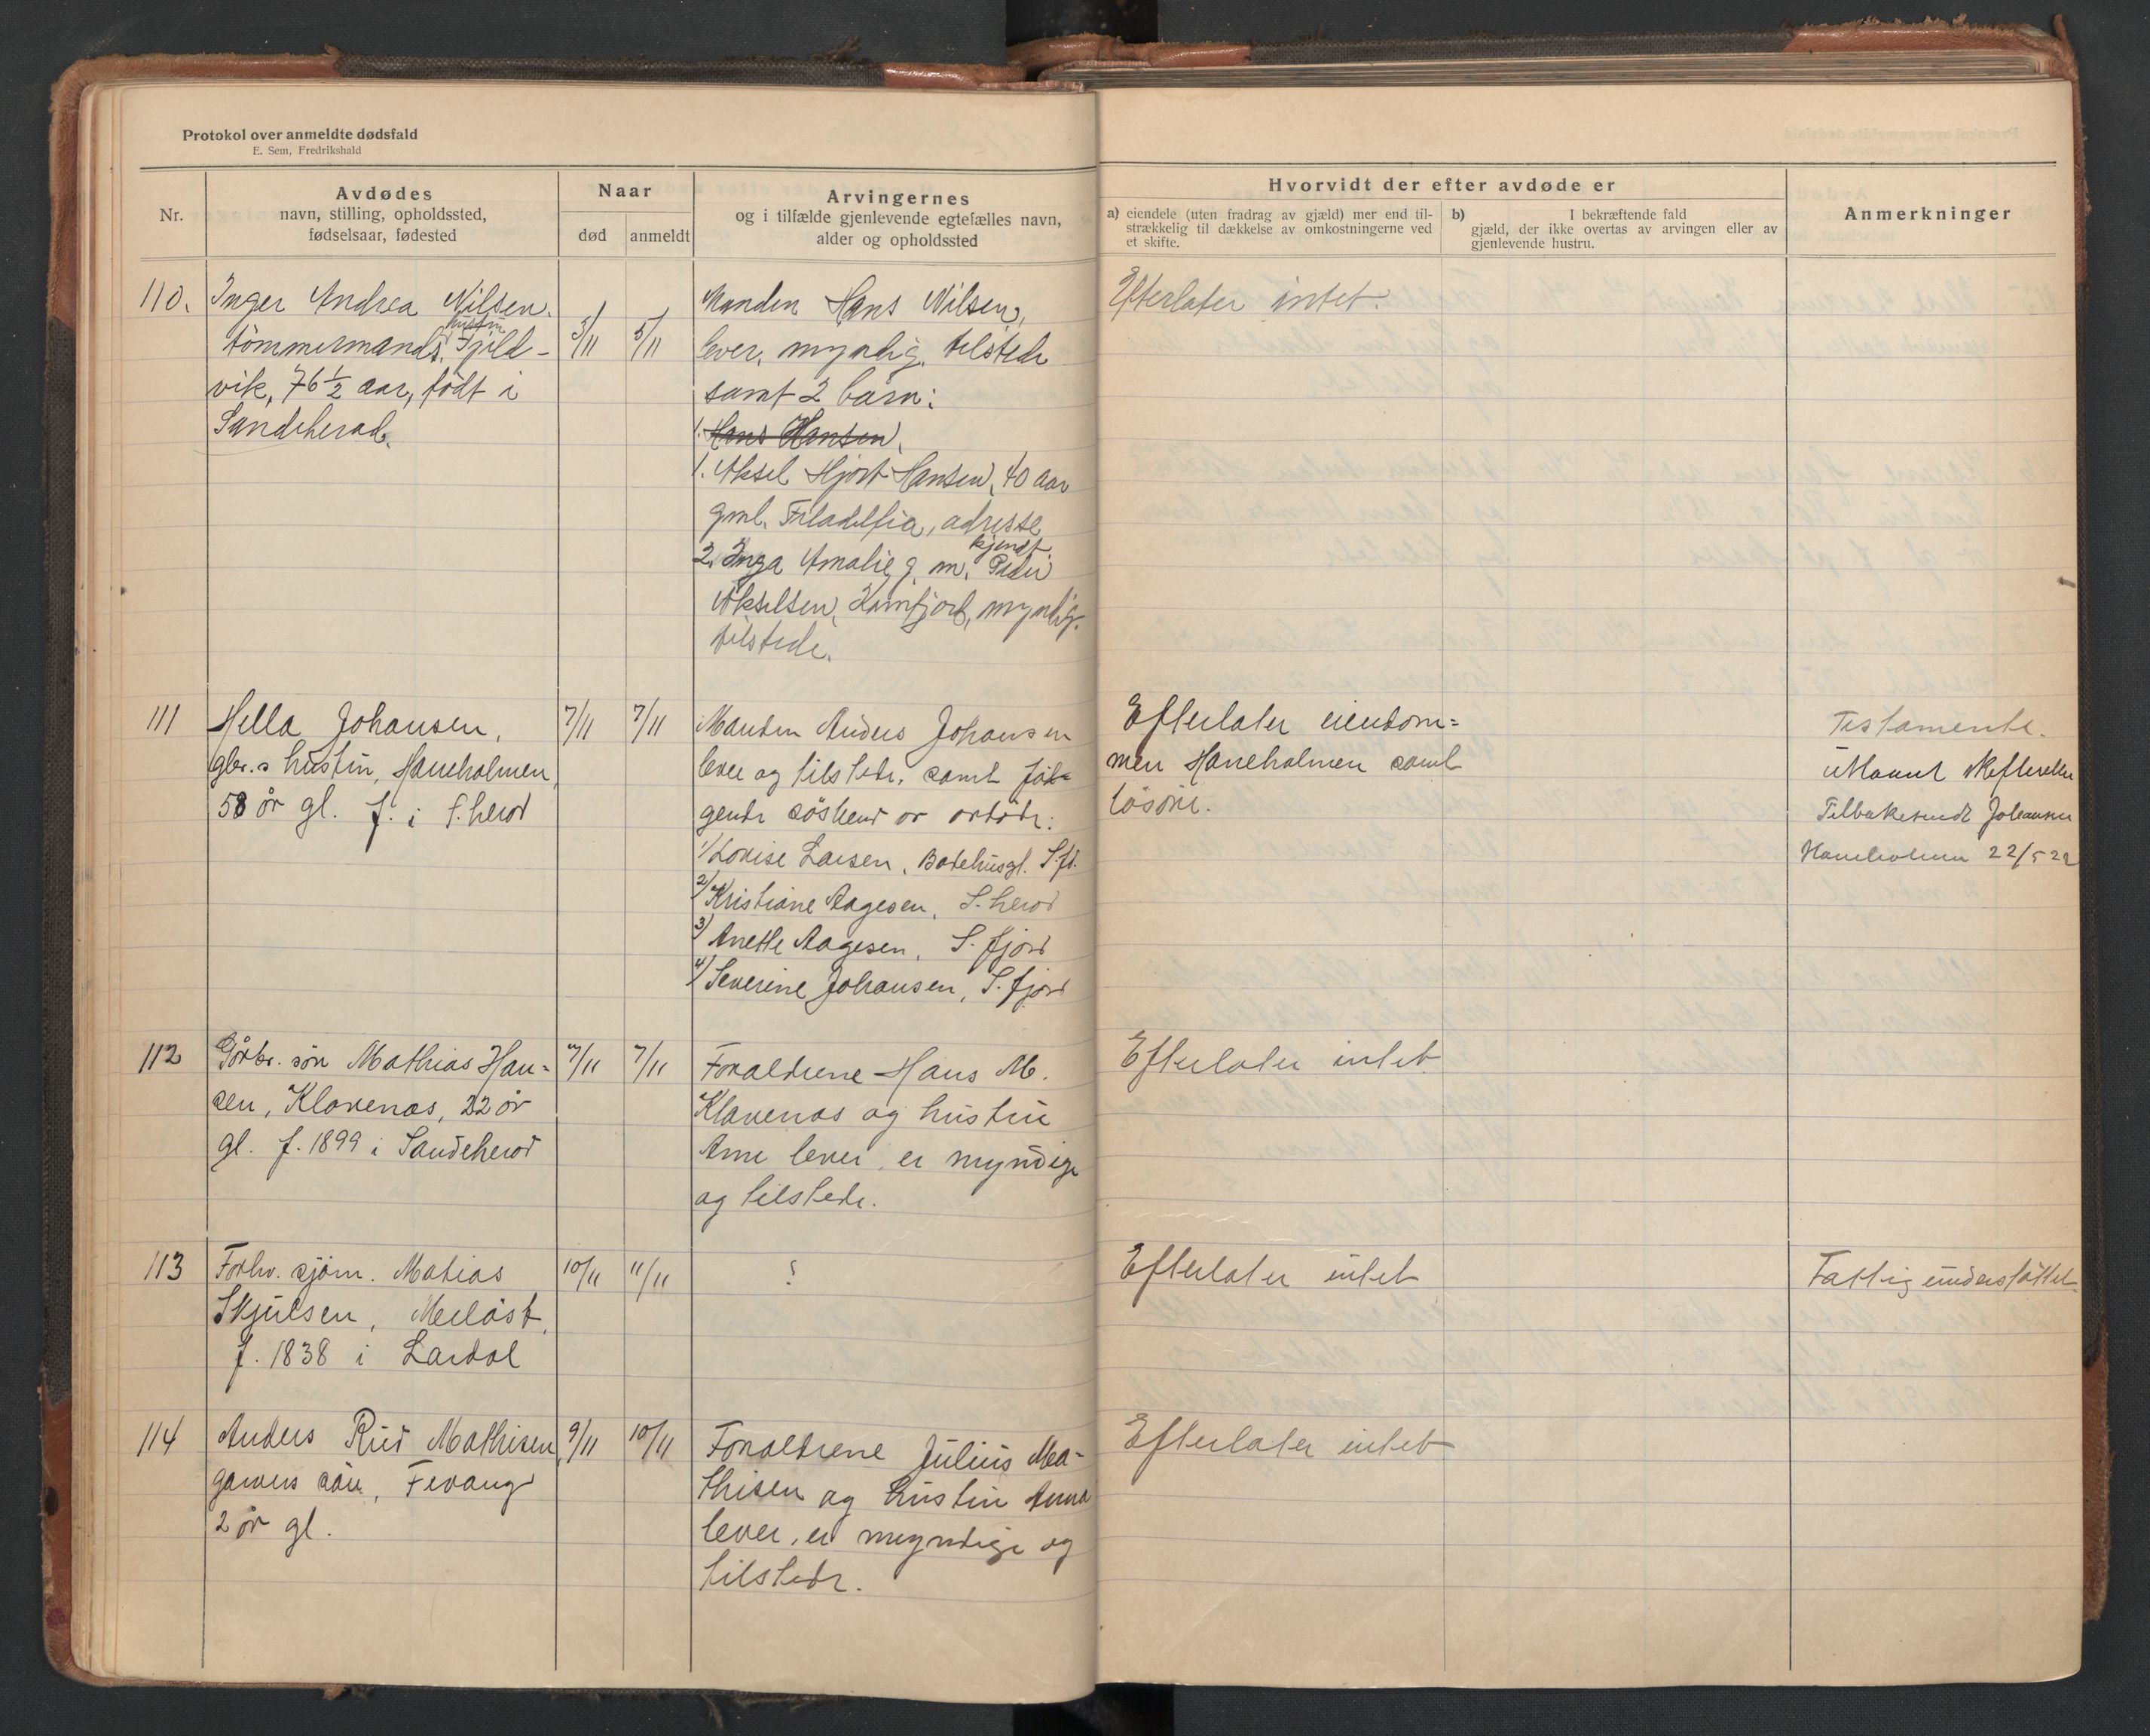 Protokol over anmeldte dødsfald
E. Sem, Fredrikshald
Nr.
Avdødes
navn, stilling, opholdssted,
fødselsaar, fødested
Naar
død
anmeldt
Arvingernes
og i tilfælde gjenlevende egtefælles navn,
alder og opholdssted
Hvorvidt der efter avdøde er
a) eiendele (uten fradrag av gjæld) mer end til-
strækkelig til dækkelse av omkostningerne ved
et skifte.
b) I bekræftende fald
gjæld, der ikke overtas av arvingen eller av
gjenlevende hustru.
Anmerkninger
110.
Inger Andrea Nilsen.
hustru
tömmermands, Fjeld-
vik, 76 1/2 aar, födt i
Sandeherad.
3/11
5/11
Manden Hans Nilsen,
lever, myndig, tilstede
samt 2 barn:
1. Hans Hansen,
1. Aksel Hjort Hansen, 40 aar
gml. Filadelfia, adresse
kjendt.
2. Inga Amalie g. m. Peder
Akselsen, Kamfjord, myndig.
tilstede.
Efterlater intet.
111
Hella Johansen,
gbr.s hustru, Haneholmen,
58 år gl. f. i S.herad
7/11
7/11
Manden Anders Johansen
lever og tilstede, samt föl-
gende söskend av avdöde:
1/ Lovise Larsen, Badehusgl. S.fj.
2/ Kristiane Aagesen, S.herad
3/ Anette Aagesen, S.fjord
4/ Severine Johansen, S.fjord
Efterlater eiendom-
men Haneholmen samt
lösöre.
Testamente.
Tilbakesendt Johansen
Haneholmen 22/5 22
112
Gårbr. sön Mathias Han-
sen, Klavenas, 22 år
gl. f. 1899 i Sandeherad
7/11
7/11
Foraldrene Hans M.
Klavenas og hustru
Anne lever, er myndige
og tilstede.
Efterlater intet
113
Forhv. sjöm. Matias
Skjulsen, Melöst,
f. 1838 i Lardal
10/11
11/11
?
Efterlater intet
Fattigunderstöttet.
114
Anders Rud Mathisen,
garvers sön, Fevang
2 år gl.
9/11
10/11
Foraldrene Julius Ma-
thisen og hustru Anna
lever, er myndige og
tilstede.
Efterlater intet